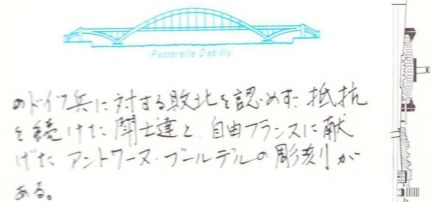 Passerelle Debilly
のドイツ兵に対する敗北を認めず、抵抗
を続けた闘士達と、自由フランスに献
げたアントワーヌ・ブールデルの彫刻が
ある。